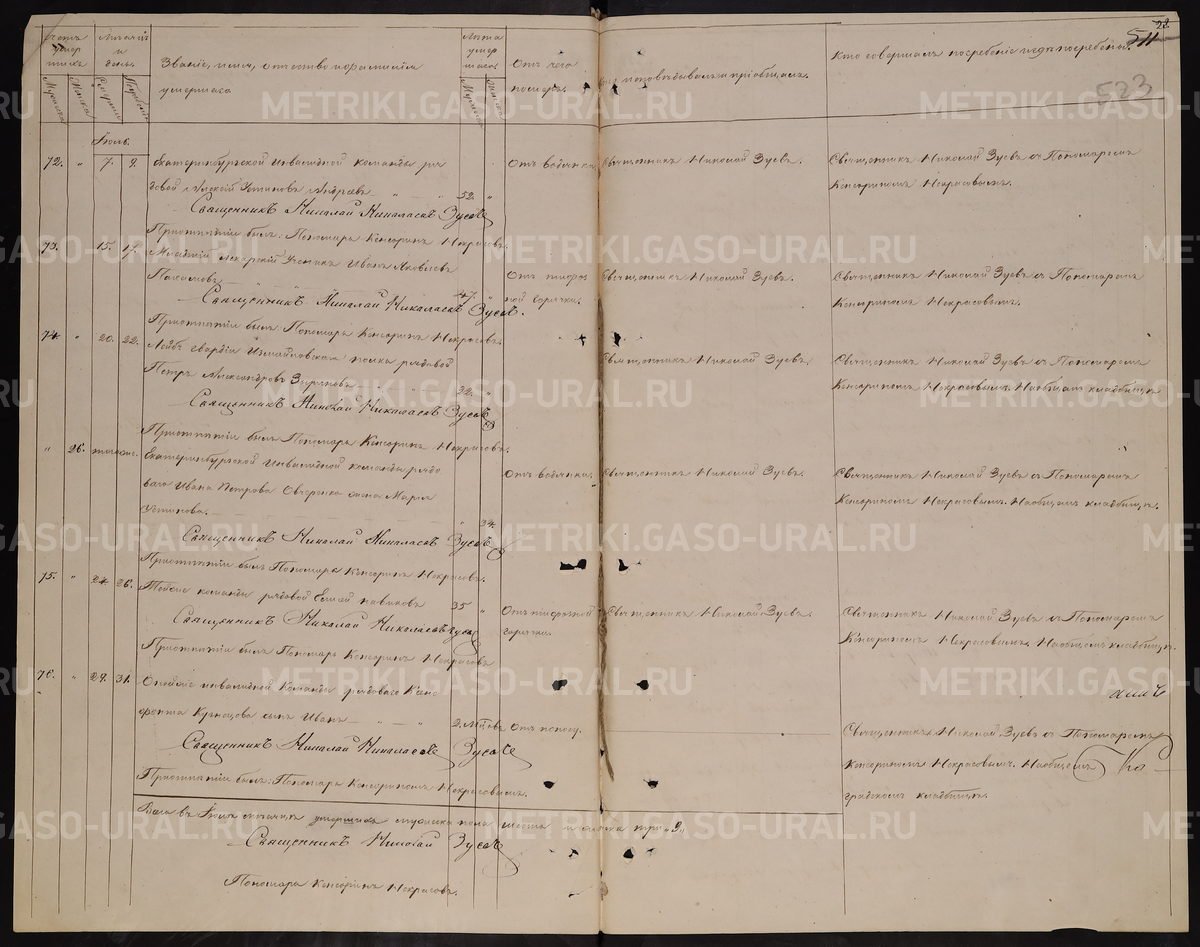 28.
511
523
Счетъ умершихъ
Мѣсяцъ и день.
Званіе, имя, отчество и фамилія умершаго
Лѣта умершаго
Отъ чего померъ.
Кто исповѣдывалъ и пріобщалъ.
Кто совершалъ погребеніе и гдѣ погребены.
Мужска
Женска
Смерти
Погребенія
Мужеска
Женска
Іюль.
72. " 7. 9. Екатеринбургской Инвалидной команды ря
довой Алексѣй Устиновъ Андреевъ 52. "
Отъ водянки
Священникъ Николай Зуевъ.
Священникъ Николай Зуевъ съ Пономаремъ
Кенсориномъ Некрасовымъ.
Священникъ Николай Николаевъ Зуевъ
При отпѣтіи былъ: Пономарь Кенсоринъ Некрасовъ.
73. 15. 17. Младшій Лекарскій Ученикъ Иванъ Яковлевъ
47. "
Отъ тифоз
ной горячки.
Священникъ Николай Зуевъ.
Священникъ Николай Зуевъ съ Пономаремъ
Кенсориномъ Некрасовымъ.
Священникъ Николай Николаевъ Зуевъ.
При отпѣтіи былъ Пономарь Кенсоринъ Некрасовъ.
74. " 20. 22. Лейбъ гвардіи Измайловскаго полка рядовой
Петръ Александровъ Зыряновъ 22. "
Священникъ Николай Зуевъ
Священникъ Николай Зуевъ съ Пономаремъ
Кенсориномъ Некрасовымъ. На общемъ кладбищѣ
Священникъ Николай Николаевъ Зуевъ
При отпѣтіи былъ Пономарь Кенсоринъ Некрасовъ.
" 26. тогоже. Екатеринбургской Инвалидной команды рядо
ваго Ивана Петрова Овчеренка жена Марія
Устинова. " 34.
Отъ водянки.
Священникъ Николай Зуевъ.
Священникъ Николай Зуевъ съ Пономаремъ
Кенсориномъ Некрасовымъ. На общемъ кладбищѣ.
Священникъ Николай Николаевъ Зуевъ
При отпѣтіи былъ Пономарь Кенсоринъ Некрасовъ.
75. " 24. 26. Тойже команды рядовой Елисей Новиковъ 35 "
Отъ тифозной
горячки.
Священникъ Николай Зуевъ.
Священникъ Николай Зуевъ съ Пономаремъ
Кенсориномъ Некрасовымъ. На общемъ кладбищѣ.
Священникъ Николай Николаевъ Зуевъ
При отпѣтіи былъ Пономарь Кенсоринъ Некрасовъ
76. " 29. 31. инвалидной Команды рядоваго Ксено
фонта Кузнецова сынъ Иванъ
Священникъ Николай Зуевъ съ Пономаремъ
Кенсориномъ Некрасовымъ. На общемъ
градскомъ кладбищѣ.
Священникъ Николай Николаевъ Зуевъ
При отпѣтіи былъ: Пономарь Кенсориномъ Некрасовымъ.
Всего въ Іюлѣ мѣсяцѣ умершихъ мужеска пола
Священникъ Николай Зуевъ
Пономарь Кенсоринъ Некрасовъ.
METRIKI.GASO-URAL.RU